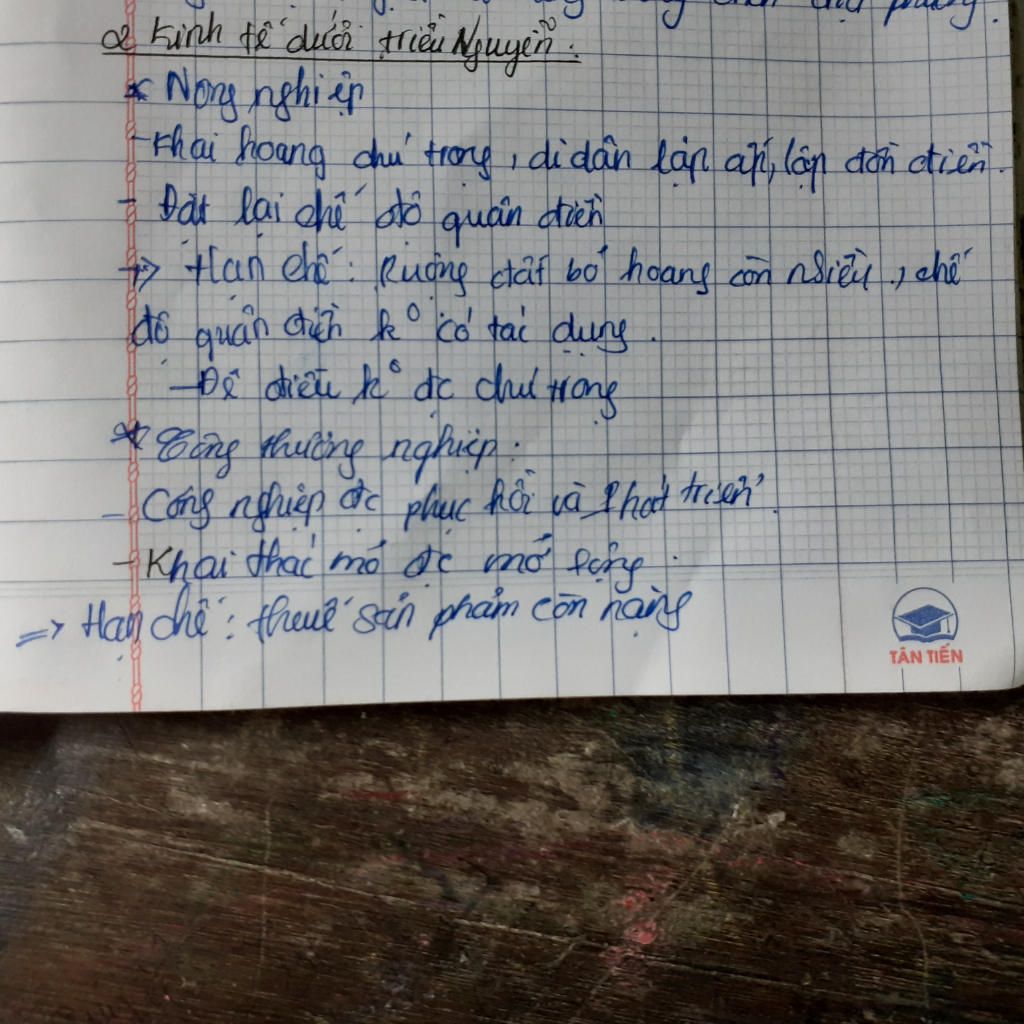 phương.
2 Kinh tế dưới triều Nguyễn.
* Nông nghiệp
- Khai hoang chú trọng, di dân lập ấp, lập đồn điền.
- Đặt lại chế độ quân điền
=> Hạn chế: Ruộng đất bỏ hoang còn nhiều, chế
độ quân điền k° có tác dụng.
- Đê điều k° đc chú trọng
* Công thương nghiệp:
- Công nghiệp đc phục hồi và phát triển.
- Khai thác mỏ đc mở rộng.
=> Hạn chế: thuế sản phẩm còn nặng
TÂN TIẾN